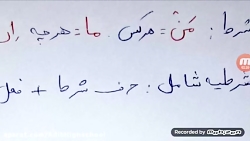 شرط: مَنْ = هرکس ما = هرچه إن
شرطیه شامل: حرف شرط + فعل
Recorded by